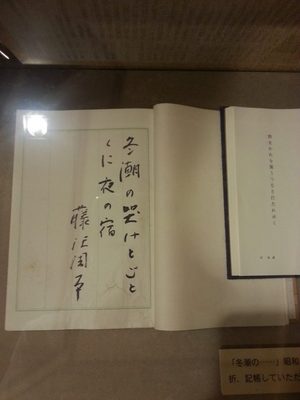 冬潮の哭けとごと
くに夜の宿
藤沢周平
「冬潮の……」昭和
折、記帳していただ